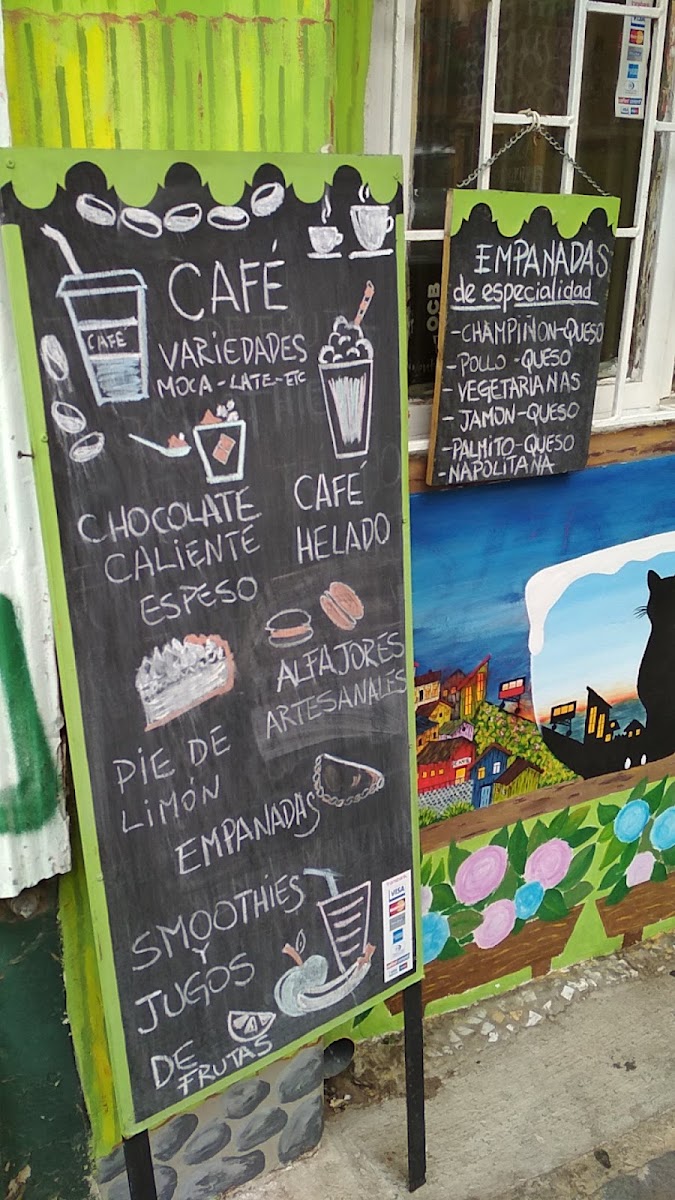 CAFÉ
CAFÉ
VARIEDADES
MOCA - LATE - ETC
CHOCOLATE
CALIENTE
ESPESO
CAFÉ
HELADO
ALFAJORES
ARTESANALES
PIE DE
LIMÓN
EMPANADAS
SMOOTHIES
Y
JUGOS
DE
FRUTAS
VISA
EMPANADAS
de especialidad
-CHAMPIÑON-QUESO
-POLLO-QUESO
-VEGETARIANAS
-JAMÓN-QUESO
-PALMITO-QUESO
-NAPOLITANA
OCB